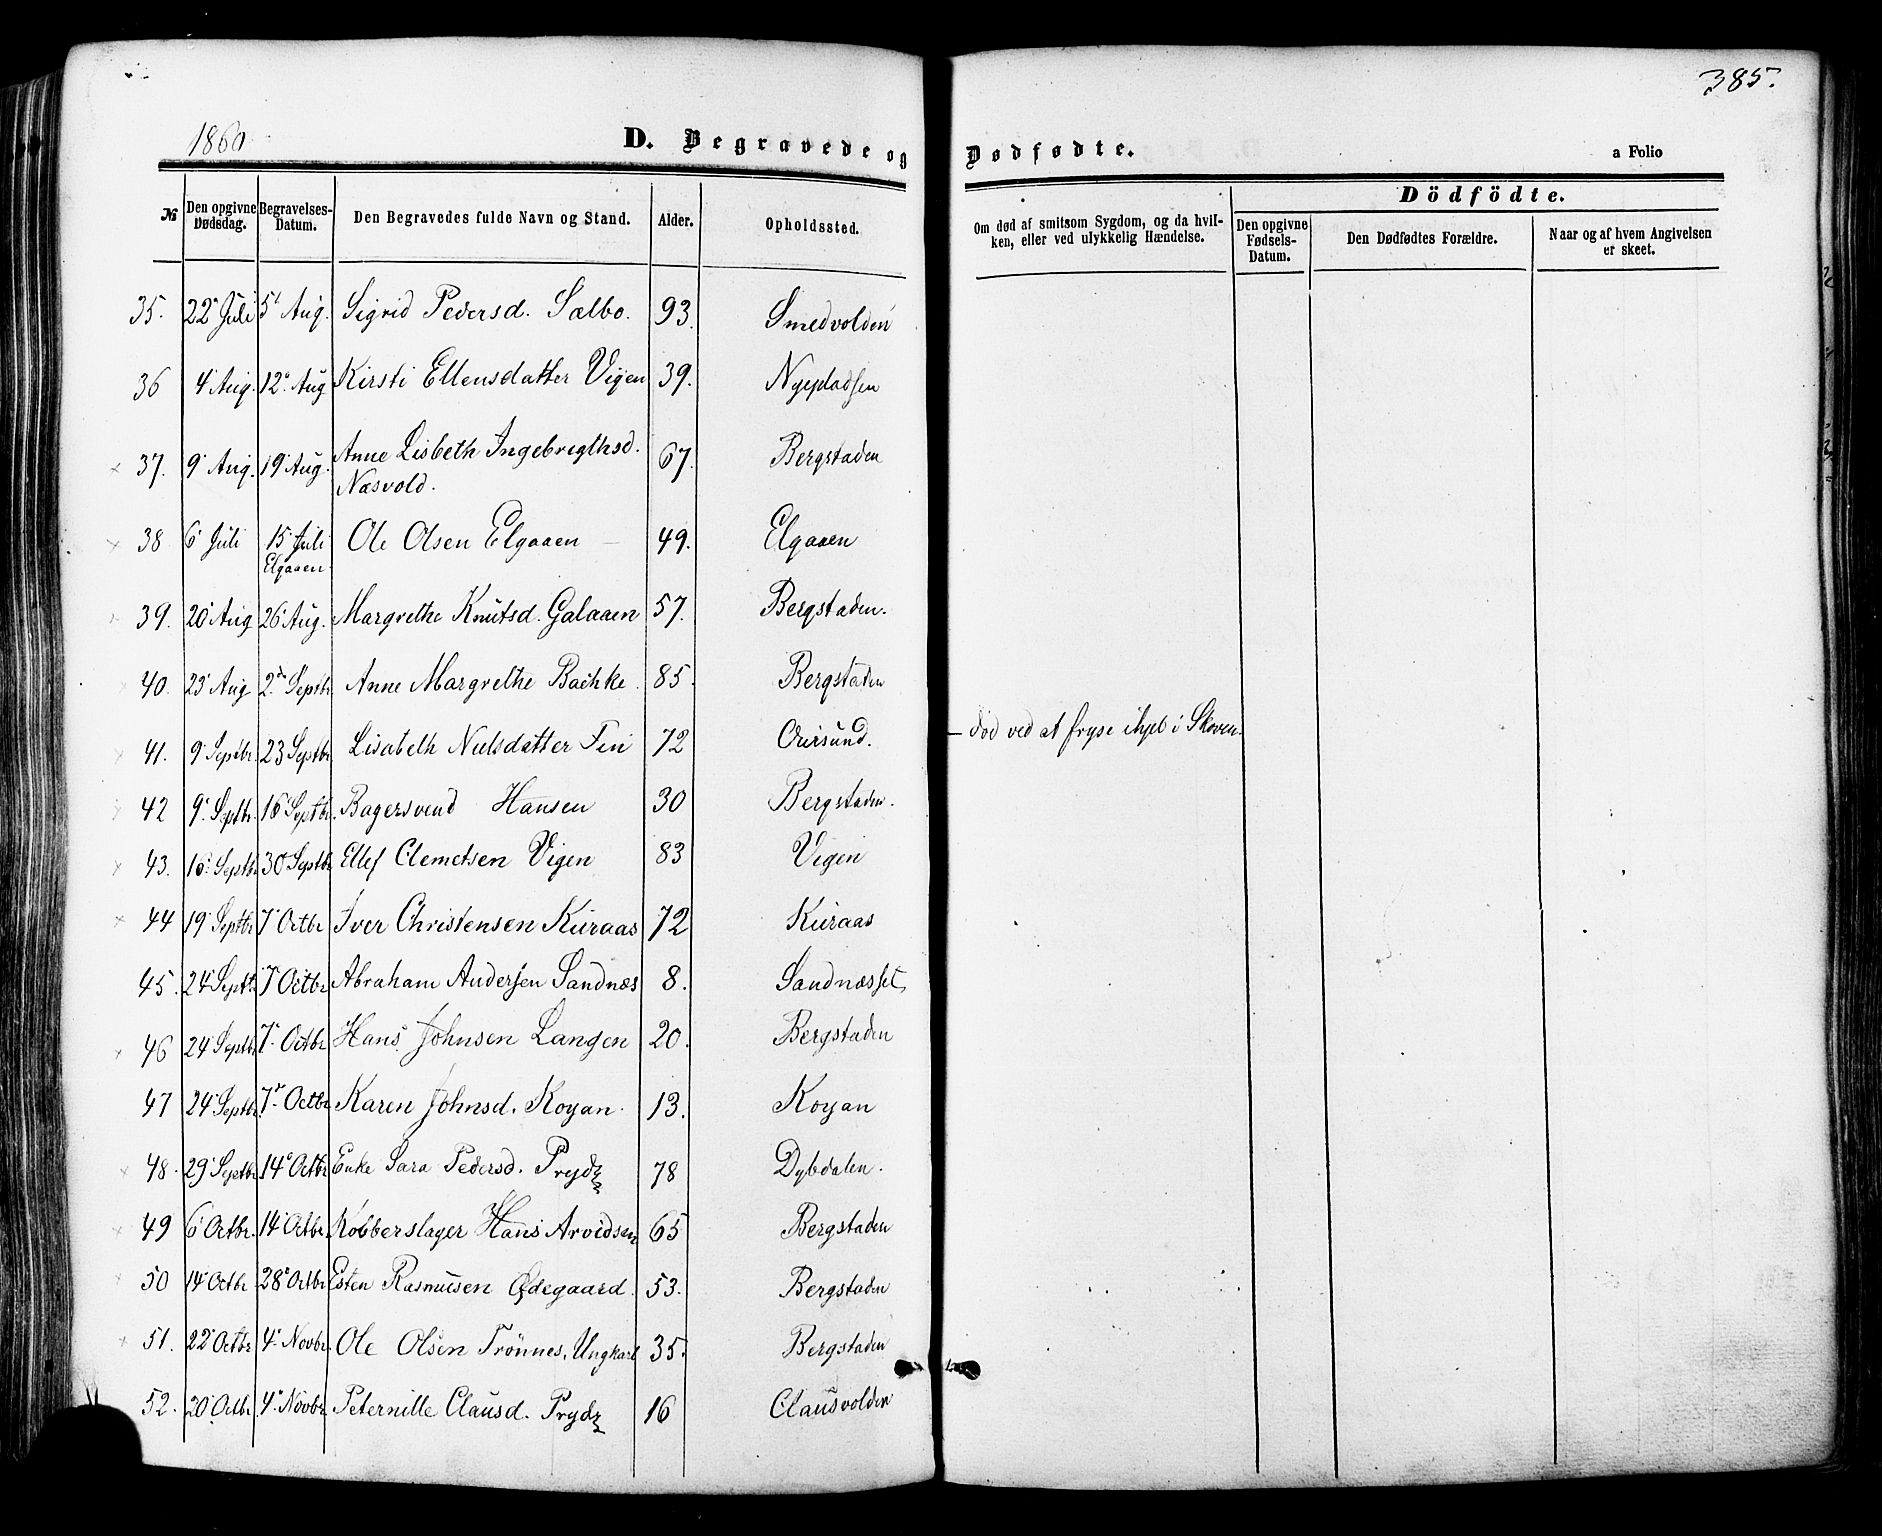 385.
1860
D. Begravede og Dødfødte.
a Folio
Dödfödte.
№ Den opgivne Dødsdag. Begravelses-Datum. Den Begravedes fulde Navn og Stand. Alder. Opholdssted. Om død af smitsom Sygdom, og da hvilken, eller ved ulykkelig Hændelse. Den opgivne Fødsels-Datum. Den Dødfødtes Forældre. Naar og af hvem Angivelsen er skeet.
35. 22 Juli 5t Aug. Sigrid Pedersd. Sælbo. 93. Smedvolden
36 4 Aug. 12. Aug Kirsti Ellensdatter Vigen 39. Nyepladsen
37. 9 Aug. 19 Aug. Anne Lisbeth Ingebregthsd. 67. Bergstaden
Næsvold.
38 6 Juli 15 Juli Ole Olsen Elgaaen 49. Elgaaen
Elgaaen
39. 20 Aug 26 Aug. Margrethe Knutsd. Galaaen 57. Bergstaden.
40. 23 Aug 2. Septbr. Anne Margrethe Bachke. 85. Bergstaden
41. 9 Septbr. 23 Septbr Lisabeth Nielsdatter Fin 72 Oursund. – død ved at fryse ihjel i Skoven.
42 9. Septbr. 16 Septbr. Bagersvend Hansen 30 Bergstaden.
43. 16. Septbr 30 Septbr Ellef Clemetsen Vigen 83 Vigen
44 19 Septbr 7 Octbr Iver Christensen Kuraas 72 Kuraas
45. 24 Septbr 7 Octbr Abraham Andersen Sandnæs 8. Sandnæsset,
46 24 Septbr 7. Octbr Hans Johnsen Langen 20. Bergstaden
47 24 Septbr 7. Octbr Karen Johnsd. Koyan. 13. Koyan
48. 29 Septbr 14 Octbr Enke Sara Pedersd. Prydz 78 Dybdalen.
49 6 Octbr. 14 Octbr. Kobberslager Hans Arvidsen 65 Bergstaden
50 14 Octbr 28 Octbr Esten Rasmusen Ødegaard. 53. Bergstaden
51. 22 Octbr 4. Novbr. Ole Olsen Trönnes, Ungkarl 35. Bergstaden
52. 20 Octbr. 4. Novbr Peternille Clausd. Prydz 16 Clausvolden